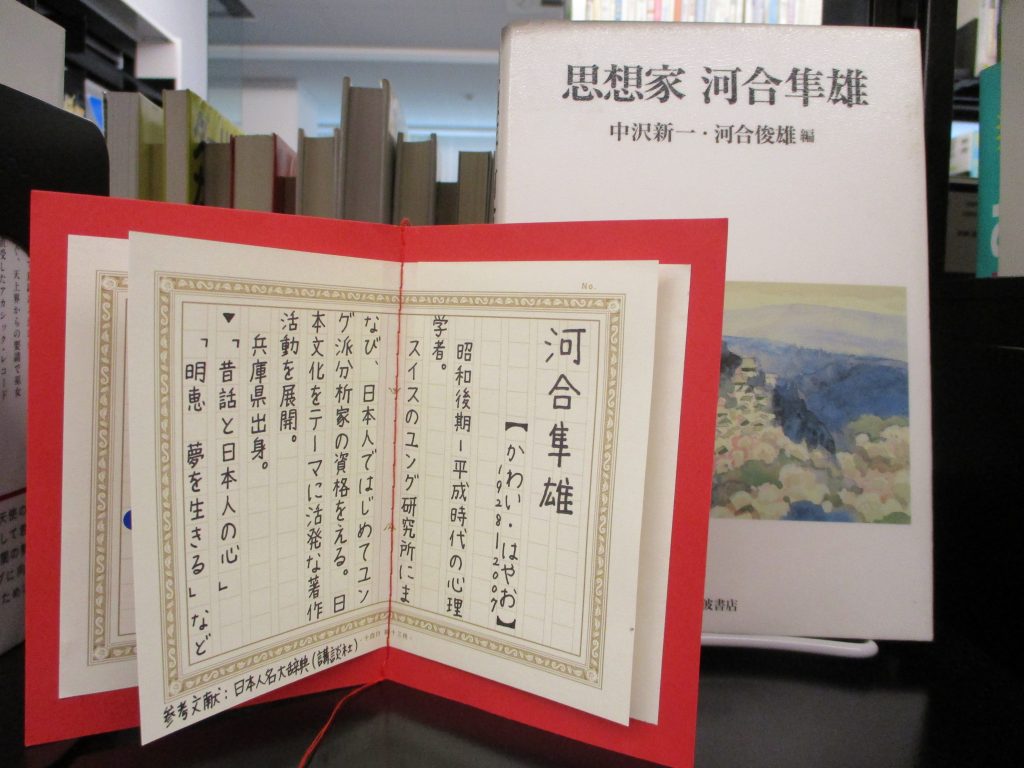 思想家 河合隼雄
中沢新一・河合俊雄 編
波書店
No.
河合隼雄
【かわい・はやお】
1928－2007
昭和後期－平成時代の心理
学者。
スイスのユング研究所にま
なび、日本人ではじめてユン
グ派分析家の資格をえる。日
本文化をテーマに活発な著作
活動を展開。
兵庫県出身。
▼「昔話と日本人の心」
「明恵 夢を生きる」など
参考文献：日本人名大辞典（講談社）